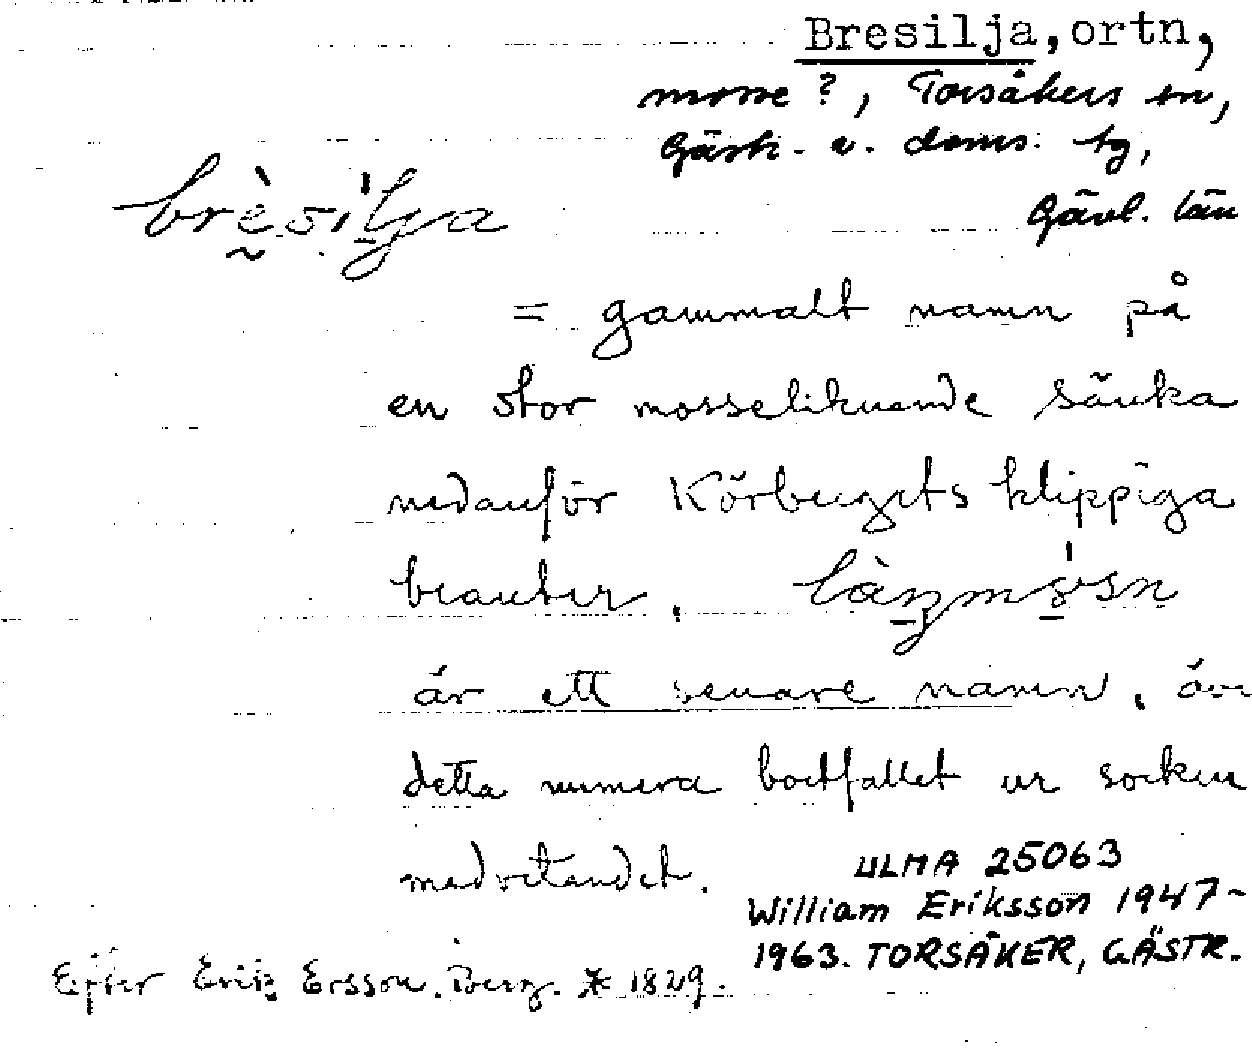 Bresilja, ortn,
mosse?, Torsåkers sn,
Gästr. v. doms. tg,
Gävl. län
brèsílja
= gammalt namn på
en stor mosseliknande sänka
nedanför Körbergets klippiga
branter.
är ett senare namn, även
detta numera bortfallet ur socken
medvetandet.
ULMA 25063
William Eriksson 1947-
1963. TORSÅKER, GÄSTR.
Efter Erik Ersson, Berg. * 1829.